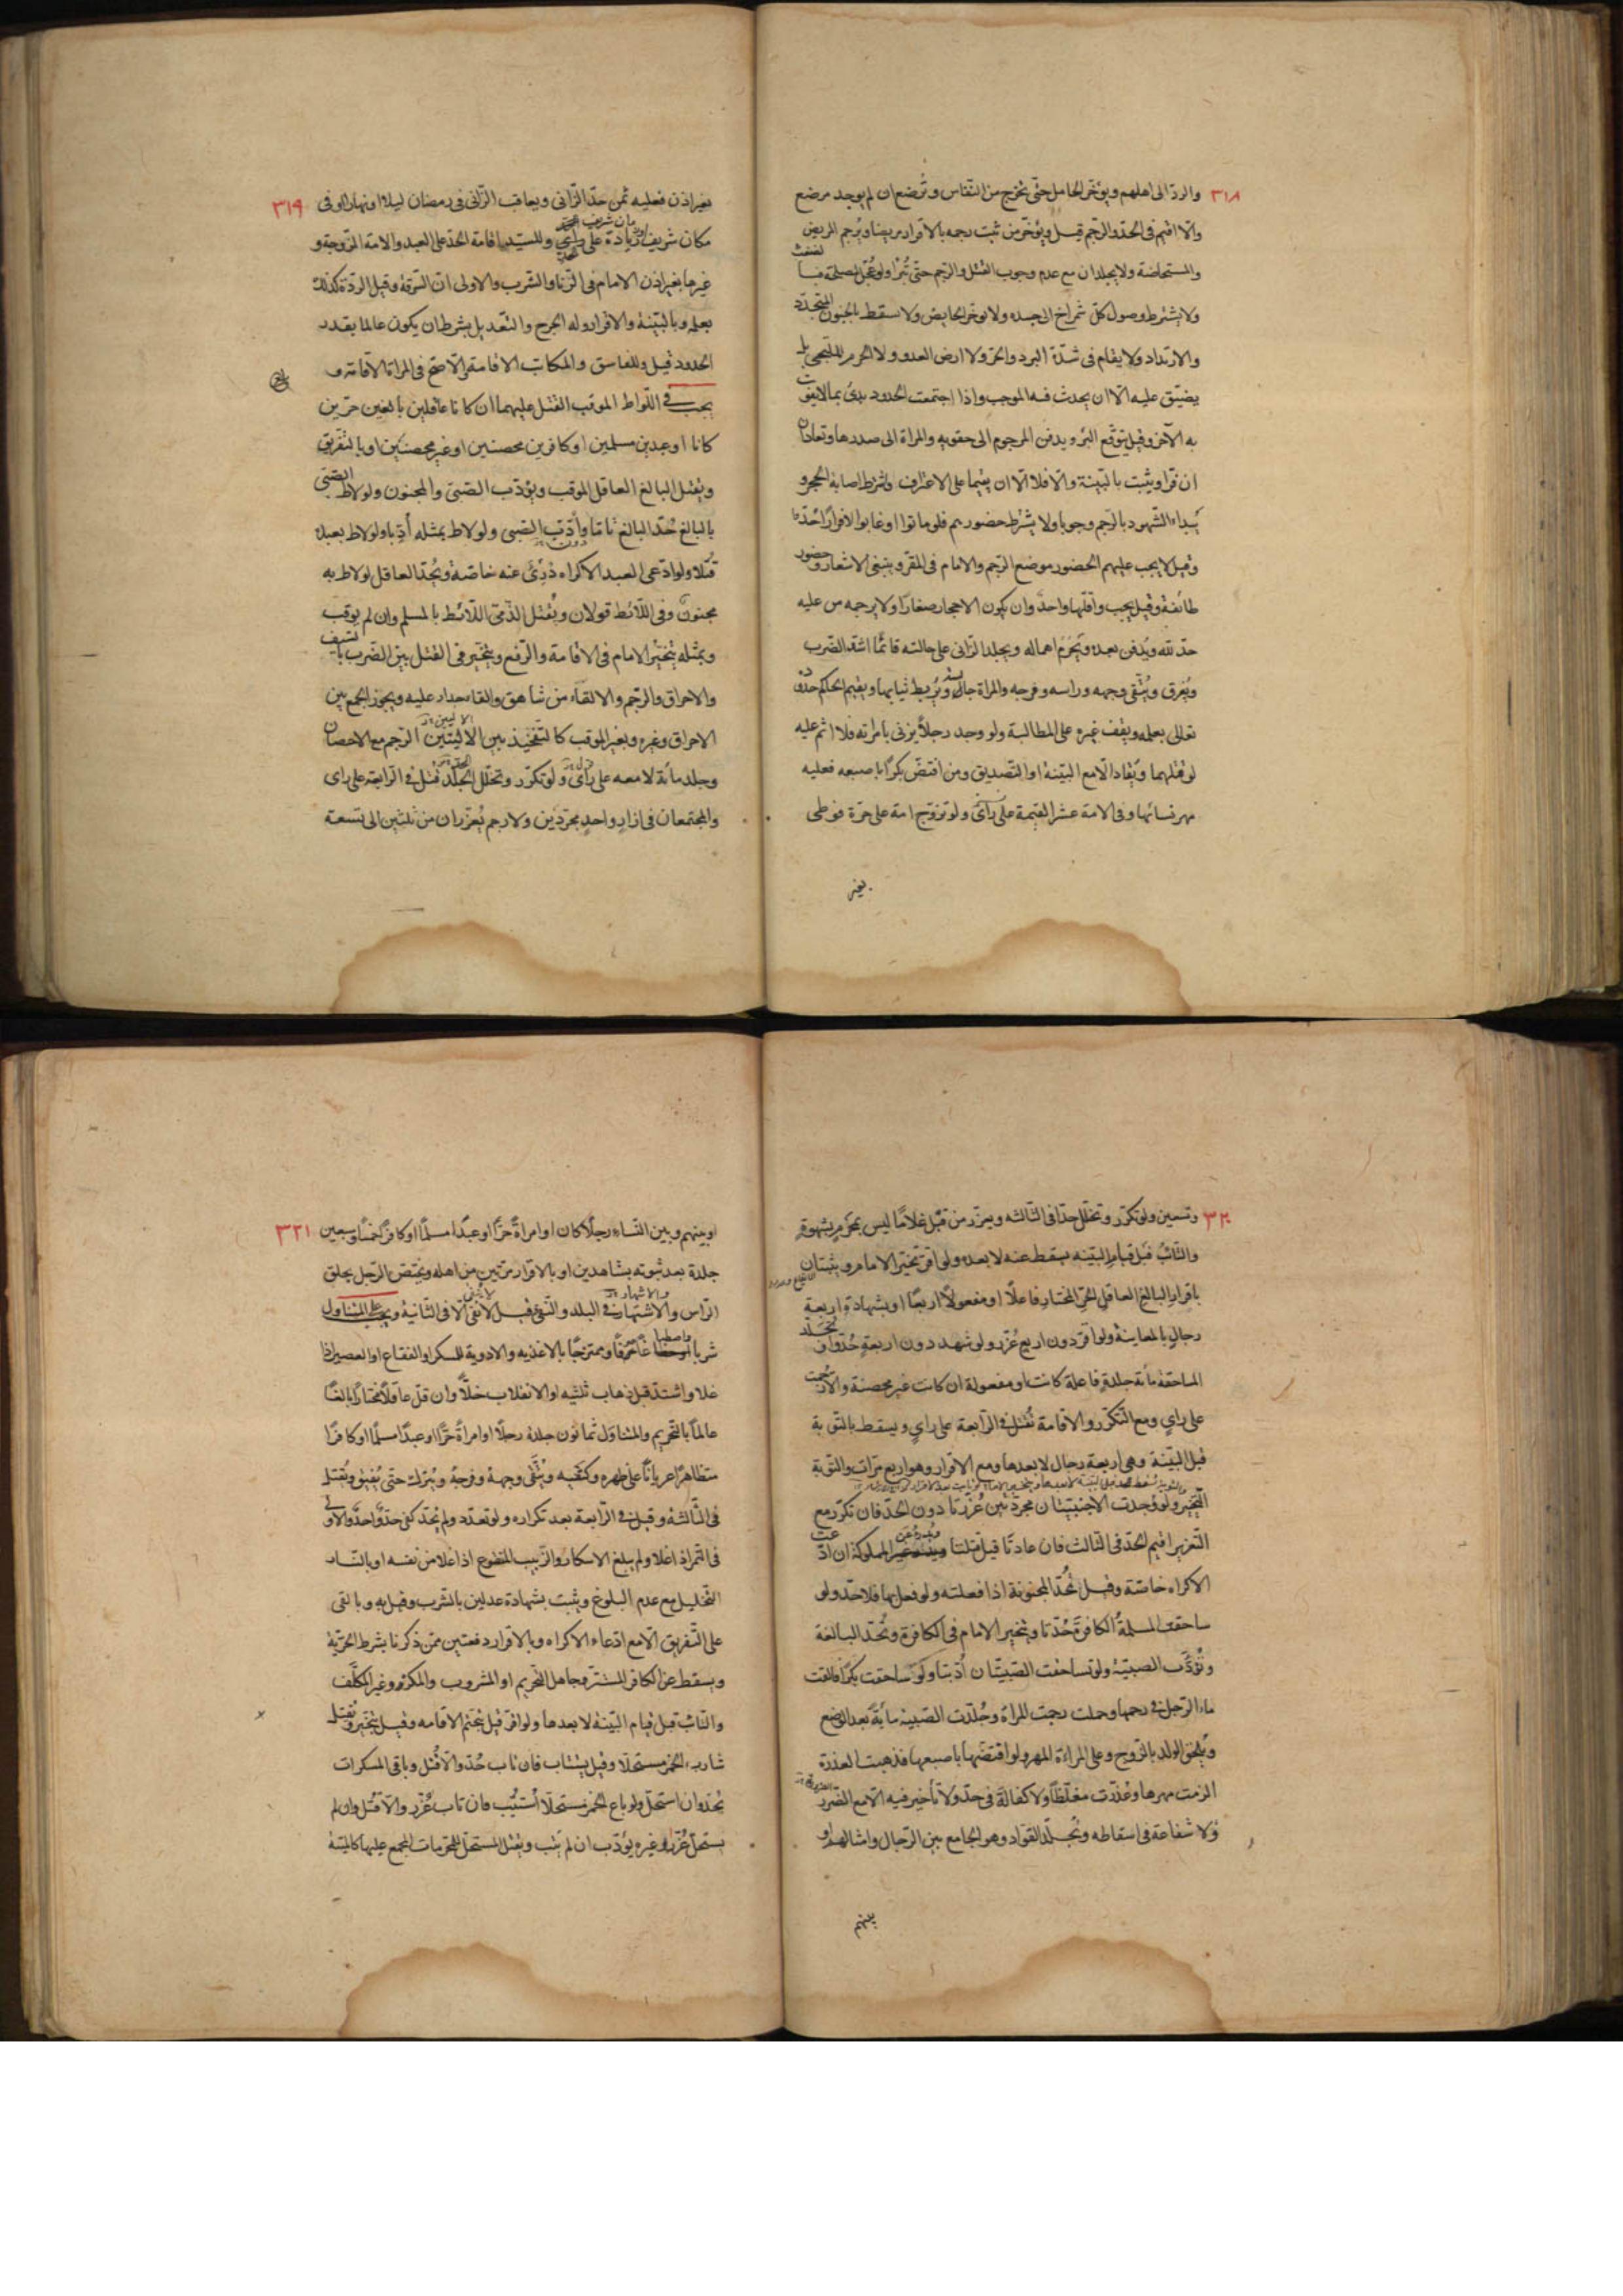 ٣١٨
والردّ الى اهلهم ويؤخّر الحامل حتّى تخرج من النفاس وترضع ان لم يوجد مرضع
والّا اقيم فى الحدّ والرجم قيل ويؤخّر من ثبت رجمه بالاقرار مريضا ويُرجم المريض
والمستحاضة ولا يجلدان مع عدم وجوب القتل والرجم حتّى تُبرا ولو عُجّل لمصلحة فبا لضغث
ولا يشترط وصول كلّ شمراخ الى جسده ولا يوخّر الحايض ولا يسقط بالجنون المتجدّد
والارتداد ولا يقام فى شدّة البرد والحرّ ولا ارض العدو ولا الحرم للملتجى بل
يضيّق عليه الّا ان يحدث فيه الموجب واذا اجتمعت الحدود بدئ بما لايفوت
به الآخر وقيل يتوقّع البرُ ويدفن المرجوم الى حقويه والمراة الى صدرها وتعادان
ان فرّا وثبت بالبيّنة والّا فلا الّا ان يقيما على الاعتراف واشترط اصابة الحجر و
يبداء الشهود بالرجم وجوبا ولا يشترط حضورهم فلو ماتوا او غابوا لا فرارًا حُدّ
وقيل لا يجب عليهم الحضور موضع الرجم والامام فى المقر وينبغى الاشعار وحضور
طائفة وقيل يجب واقلّها واحد وان يكون الاحجار صغارًا ولا يرجمه من عليه
حدّ لله ويُدفن بعده ويَحرُم اهماله ويجلد الزانى على حالته قائمًا اشدّ الضرب
ويُفرق ويُتّقى وجهه وراسه وفرجه والمراة جالسة ويُربط ثيابها ويقيم الحاكم حدوده
تعالى بعلمه ويقف غيره على المطالبة ولو وجد رجلًا يزنى بامراته فلا اثم عليه
لو قتلهما ويُقاد الّا مع البيّنة او التصديق ومن افتضّ بكرًا باصبعه فعليه
مهر نسائها وفى الامة عشر القيمة على رأى ولو تزوّج امة على حرّة فوطى
بغير
٣١٩
بغير اذن فعليه ثمن حدّ الزانى ويعاقب الزانى فى رمضان ليلا او نهارا او فى
مكان شريف زيادة على رأى وللسيّد اقامة الحدّ على العبد والامة المزوجة و
غيرها بغير اذن الامام فى الزنا والشرب والاولى انّ السرقة وقيل الردّة كذلك
بعلمه وبالبيّنة والاقرار وله الجرح والتعديل بشرط ان يكون عالما بقدر
الحدود قيل وللفاسق والمكاتب الاقامة والاصحّ فى المراة الاقامة و
يجب فى اللواط الموقب القتل عليهما ان كانا عاقلين بالغين حرّين
كانا او عبدين مسلمين او كافرين محصنين او غير محصنين او بالتفريق
ويُقتل البالغ العاقل الموقب ويؤدّب الصّبىّ والمجنون ولو لاط الصّبىّ
بالبالغ حُدّ البالغ تامّا وأدّب الصّبى ولو لاط بمثله أدّبا ولو لاط بعبده
قُتلا ولو ادّعى العبد الاكراه دُرِئ عنه خاصّة ويُحدّ العاقل لو لاط به
مجنون وفى اللائط قولان ويُقتل الذمّى اللائط بالمسلم وان لم يوقب
وبمثله يتخيّر الامام فى الاقامة والرفع ويتخيّر فى القتل بين الضرب بالسيف
والاحراق والرجم والالقاء من شاهق والقاء جدار عليه ويجوز الجمع بين
الاحراق وغيره وبغير الموقب كالتفخيذ بين الاليتين الرجم مع الاحصان
وجلد مائة لا معه على رأى ولو تكرّر وتخلّل الجلد قُتل فى الرابعة على راى
والمجتمعان فى ازار واحد مجرّدين ولا رحم يُعزّران من ثلثين الى تسعة
٣٢٠
وتسعين ولو تكرّر وتخلّل حدّا فى الثالثه ويعزّر من قبّل غلامًا ليس بمحرم بشهوة
والتائب قبل قيام البيّنه يسقط عنه لا بعده ولو اقرّ تخيّر الامام ويثبتان
باقرار البالغ العاقل الحرّ المختار فاعلًا او مفعولًا اربعًا او بشهادة اربعة
رجال بالمعاينة ولو اقرّ دون اربع عُزّر ولو شهد دون اربعة حُدّوا وتُجلد
المساحقة مائة جلدة فاعلة كانت او مفعولة ان كانت غير محصنة والا رُجمت
على راى ومع التّكرّر والاقامة تُقتل فى الرابعة على راى ويسقط بالتوبة
قبل البيّنة وهى اربعة رجال لا بعدها ومع الاقرار وهو اربع مرّات والتوبة
التّخيير ولو وُجدت الاجنبيّتان مجرّدتين عُزّرتا دون الحدّ فان تكرّر مع
التعزير اقيم الحدّ فى الثالث فان عادتا قيل قتلتا ويُدرء عن المملوكة ان ادّعت
الاكراه خاصّة وقيل تُحدّ المجنونة اذا فعلته ولو فعل بها فلا حدّ ولو
ساحقت المسلمة الكافرة حُدّتا ويتخير الامام فى الكافرة وتُحدّ البالغة
وتُؤدَّب الصبيّة ولو تساحقت الصّبيّتان أدّبتا ولو ساحقت بكرًا فالقت
ماء الرّجل فى رحمها وحملت رجمت المراة وجُلدت الصّبية مائة بعد الوضع
ويُلحق الولد بالزوج وعلى المراءة المهر ولو افتضّتها باصبعها فذهبت العذرة
الزمت مهرها وعُزّرت مغلّظًا ولا كفالة فى حدّ ولا تأخير فيه الّا مع الضّرر
ولا شفاعة فى اسقاطه ويُجلد القوّاد وهو الجامع بين الرّجال وامثالهم او
بينهم
٣٢١
او بينهم وبين النّساء رجلًا كان او امراةً حرًّا او عبدًا مسلمًا او كافرًا خمسًا وسبعين
جلدة بعد ثبوته بشاهدين او بالاقرار مرّتين من اهله ويختصّ الرّجل بحلق
الرّاس والاشتهار فى البلد والنّفى قيل لا نفى الّا فى الثّانية ويجب على المتناول
شربا واصطباغا ممتزجًا بالاغذيه والادوية للسكر او الفقّاع او العصير اذا
غلا واشتدّ قبل ذهاب ثلثيه او الانقلاب خلًّا وان قلّ عاقلًا مختارًا بالغًا
عالمًا بالتّحريم والمتناوَل ثمانون جلدة رجلًا او امراةً حرًّا او عبدًا مسلمًا او كافرًا
متظاهرًا عريانًا على ظهره وكتفيه ويُتّقى وجهه وفرجه ويُترك حتّى يُفيق ويُقتل
فى الثّالثة وقيل فى الرّابعة بعد تكراره ولو تعدّد ولم يُحدّ كفى حدّ واحد ولا
فى التّمر اذا غلا ولم يبلغ الاسكار والزّبيب المنقوع اذا غلا من نفسه او بالنّار
التّحليل مع عدم البلوغ ويثبت بشهادة عدلين بالشّرب وقيل به وبالقى
على التّفريق الّا مع ادّعاء الاكراه وبالاقرار دفعتين ممّن ذكرنا بشرط الحرّيّة
ويسقط عن الكافر المستتر وجاهل التّحريم او المشروب والمكره وغير المكلّف
والتّائب قبل قيام البيّنة لا بعدها ولو اقرّ قيل يتحتّم الاقامه وقيل يتخيّر ويُقتل
شارب الخمر مستحلًّا وقيل يستتاب فان تاب حُدّ والّا قُتل وباقى المسكرات
يُحدّ وان استحلّ ولو باع الخمر مستحلًّا اُستتيب فان تاب عُزّر والّا قُتل وان لم
يستحلّ عُزّر وغيره يؤدّب ان لم يتب ويقتل المستحلّ للمحرّمات المجمع عليها كالميتة